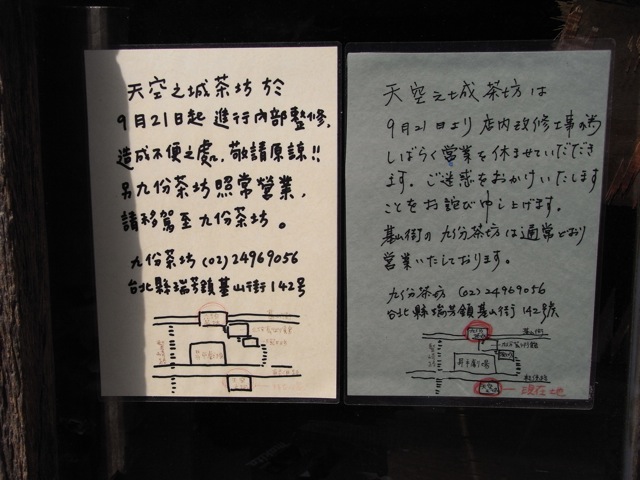 天空之城茶坊於
9月21日起進行內部整修,
造成不便之處,敬請原諒!!
另九份茶坊照常營業,
請移駕至九份茶坊。
九份茶坊 (02) 24969056
台北縣瑞芳鎮基山街142号
昇平劇場
天空之城茶坊は
9月21日より店内改修工事の為
しばらく営業を休ませていだだき
ます。ご迷惑をおかけいたします
ことをお詫び申し上げます。
基山街の九份茶坊は通常どおり
営業いたしております。
九份茶坊 (02) 24969056
台北縣瑞芳鎮基山街142號
基山街
昇平劇場
現在地